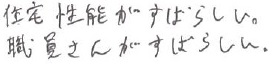 住宅性能がすばらしい。
職員さんがすばらしい。